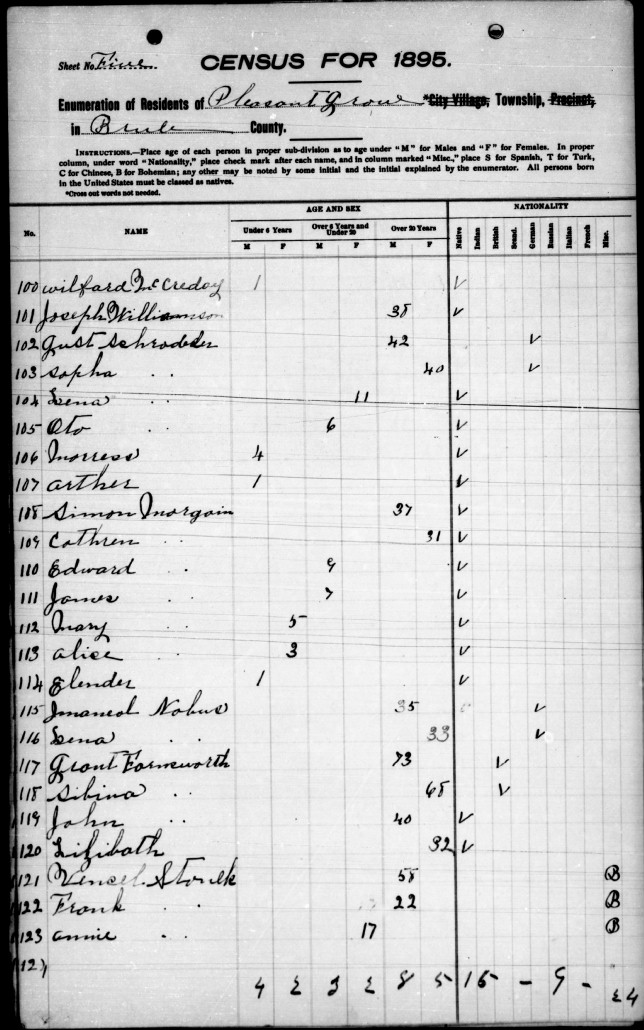 Sheet No. Five
CENSUS FOR 1895.
Enumeration of Residents of Pleasant Grove *City Village, Township, Precinct,
in Brule County.
INSTRUCTIONS.—Place age of each person in proper sub-division as to age under "M" for Males and "F" for Females. In proper
column, under word "Nationality," place check mark after each name, and in column marked "Misc.," place S for Spanish, T for Turk,
C for Chinese, B for Bohemian; any other may be noted by some initial and the initial explained by the enumerator. All persons born
in the United States must be classed as natives.
*Cross out words not needed.
No. NAME AGE AND SEX NATIONALITY
Under 6 Years Over 6 Years and Under 20 Over 20 Years
M F M F M F Native Indian British Scand. German Russian Italian French Misc.
100 Wilfard McCredey 1 ✓
101 Joseph Williamson 38 ✓
102 Gust Schroder 42 ✓
103 Sopha . . 40 ✓
104 Lena . . 11 ✓
105 Oto . . 6 ✓
106 Morress 4 ✓
107 Arther 1 ✓
108 Simon Morgain 37 ✓
109 Cathren . . 31 ✓
110 Edward . . 9 ✓
111 James . . 7 ✓
112 Mary . . 5 ✓
113 Alice . . 3 ✓
114 Elender 1 ✓
115 Imaneol Nobus 35 ✓
116 Lena . . 33 ✓
117 Grant Farnsworth 73 ✓
118 Sibina . . 68 ✓
119 John . . 40 ✓
120 Lizibath 32 ✓
121 Vencel Stonek 58 B
122 Frank . . 22 B
123 Annie . . 17 B
12
4 2 3 2 8 5 15 - 9 - 24